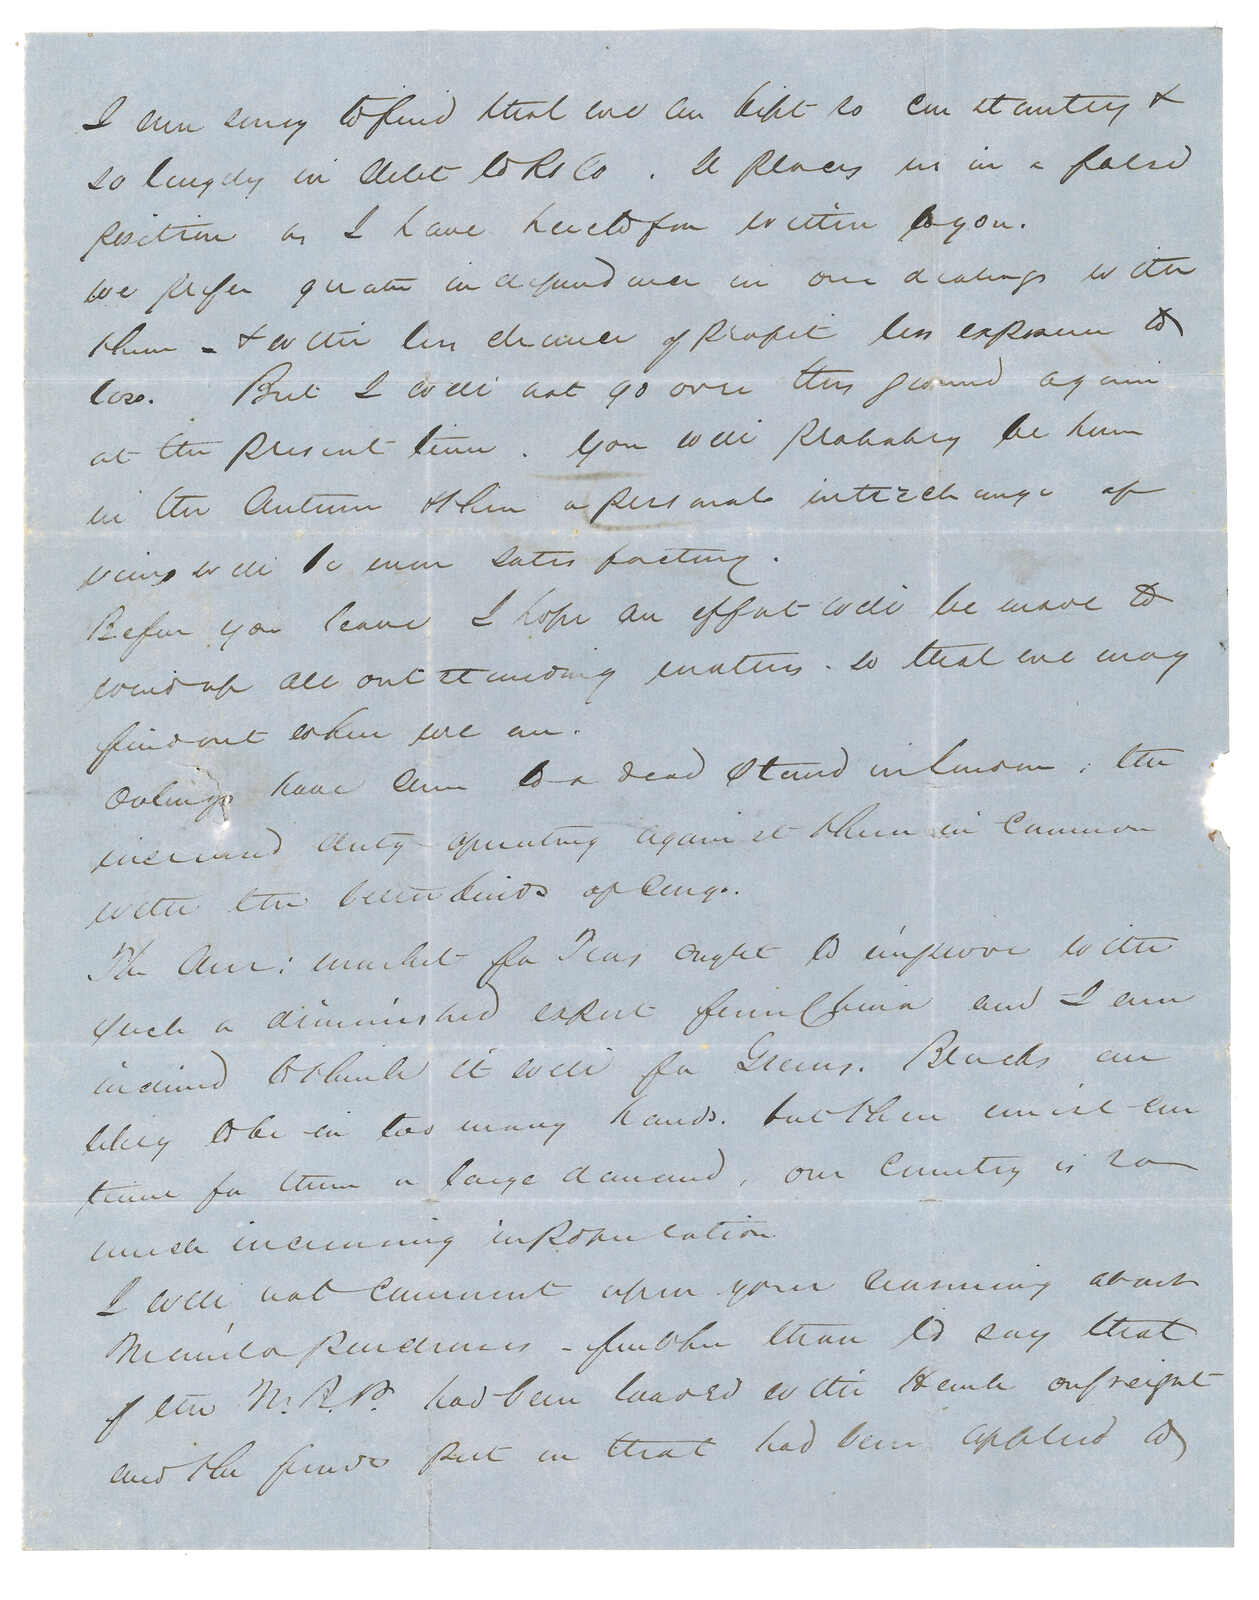 I am sorry to find that we are kept so constantly &
so largely in debt to R & Co. It places us in a false
position as I have heretofore written to you.
We prefer greater independence in our dealings with
them - & with less chance of profit less exposure to
loss. But I will not go over this ground again
at the present time. You will probably be here
in the Autumn & then a personal interchange of
views will be more satisfactory.
Before you leave I hope an effort will be made to
wind up all outstanding matters. so that we may
find out where we are.
Oolongs have come to a dead stand in London; the
increased duty operating against them in common
with the better kinds of Congo.
The Am: market for Teas ought to improve with
such a diminished export from China and I am
inclined to think it will for Greens. Blacks are
likely to be in too many hands. but there must come
time for them a large demand, our Country is so
much increasing in population
I will not comment upon your reasoning about
Manila purchases - further than to say that
if the N.B.P. had been loaded with Hemp on freight
and the funds put in that had been applied to